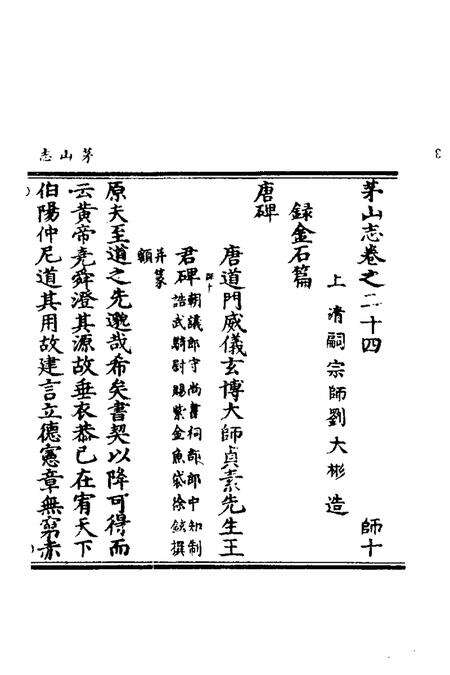 茅山志
3
茅山志卷之二十四 師十
上清嗣宗師劉大彬造
録金石篇
唐碑
唐道門威儀玄博大師貞素先生王
君碑
朝議郎守尚書祠部郎中知制
誥武騎尉賜紫金魚袋徐鉉撰
并篆
額
原夫至道之先邈哉希矣書契以降可得而
云黄帝堯舜澄其源故垂衣恭已在宥天下
伯陽仲尼道其用故建言立德憲章無窮赤